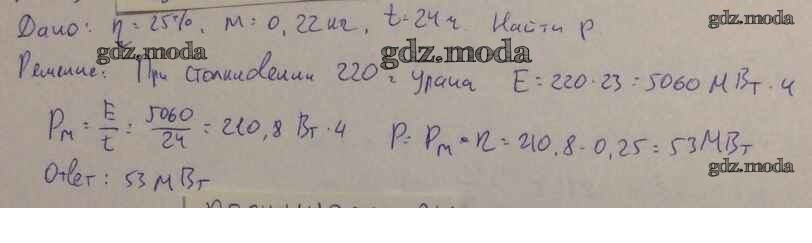 Дано: η = 25%, m = 0,22 кг, t = 24 ч. Найти P
gdz.moda
gdz.moda
gdz.moda
Решение: При столкновении 220 г урана E = 220 · 23 = 5060 МВт · ч
Pм = E/t = 5060/24 = 210,8 Вт · ч P = Pм · η = 210,8 · 0,25 = 53 МВт
gdz.moda
gdz.moda
Ответ: 53 МВт